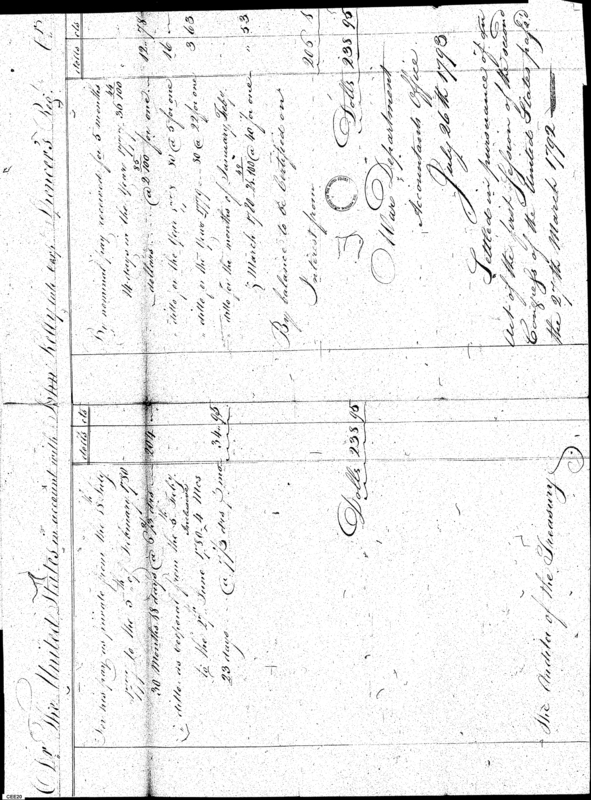 Dr The United States in account with John Kelly late corp Spencer's Regt Cr
dolls cts
To his pay as private from the 18 July
1777 to the 5th of February 1780
30 Months 18 days @ 6 2/3 drs 204
ditto as Corporal from the 6th Feby
to the 1st June 1780 4 Mos
23 days @ 7 1/3 drs mo 34.95
Dolls 238 95
The Auditor of the Treasury
dolls cts
By nominal pay received for 5 months
14 days in the Year 1777 36 44/100
dollars @ 2 85/100 for one 12 78
ditto in the Year 1778 80 @ 5 for one 16
ditto in the Year 1779 80 @ 22 for one 3 63
ditto for the months of January, Feby
March 1780 @ 40 for one 53
By balance to be Certified on
Interest from 205
Dolls 238 95
War Department
Accountants Office
July 26th 1793
Settled in pursuance of an
Act of the first Session of the second
Congress of the United States passed
the 27th March 1792
CEE20